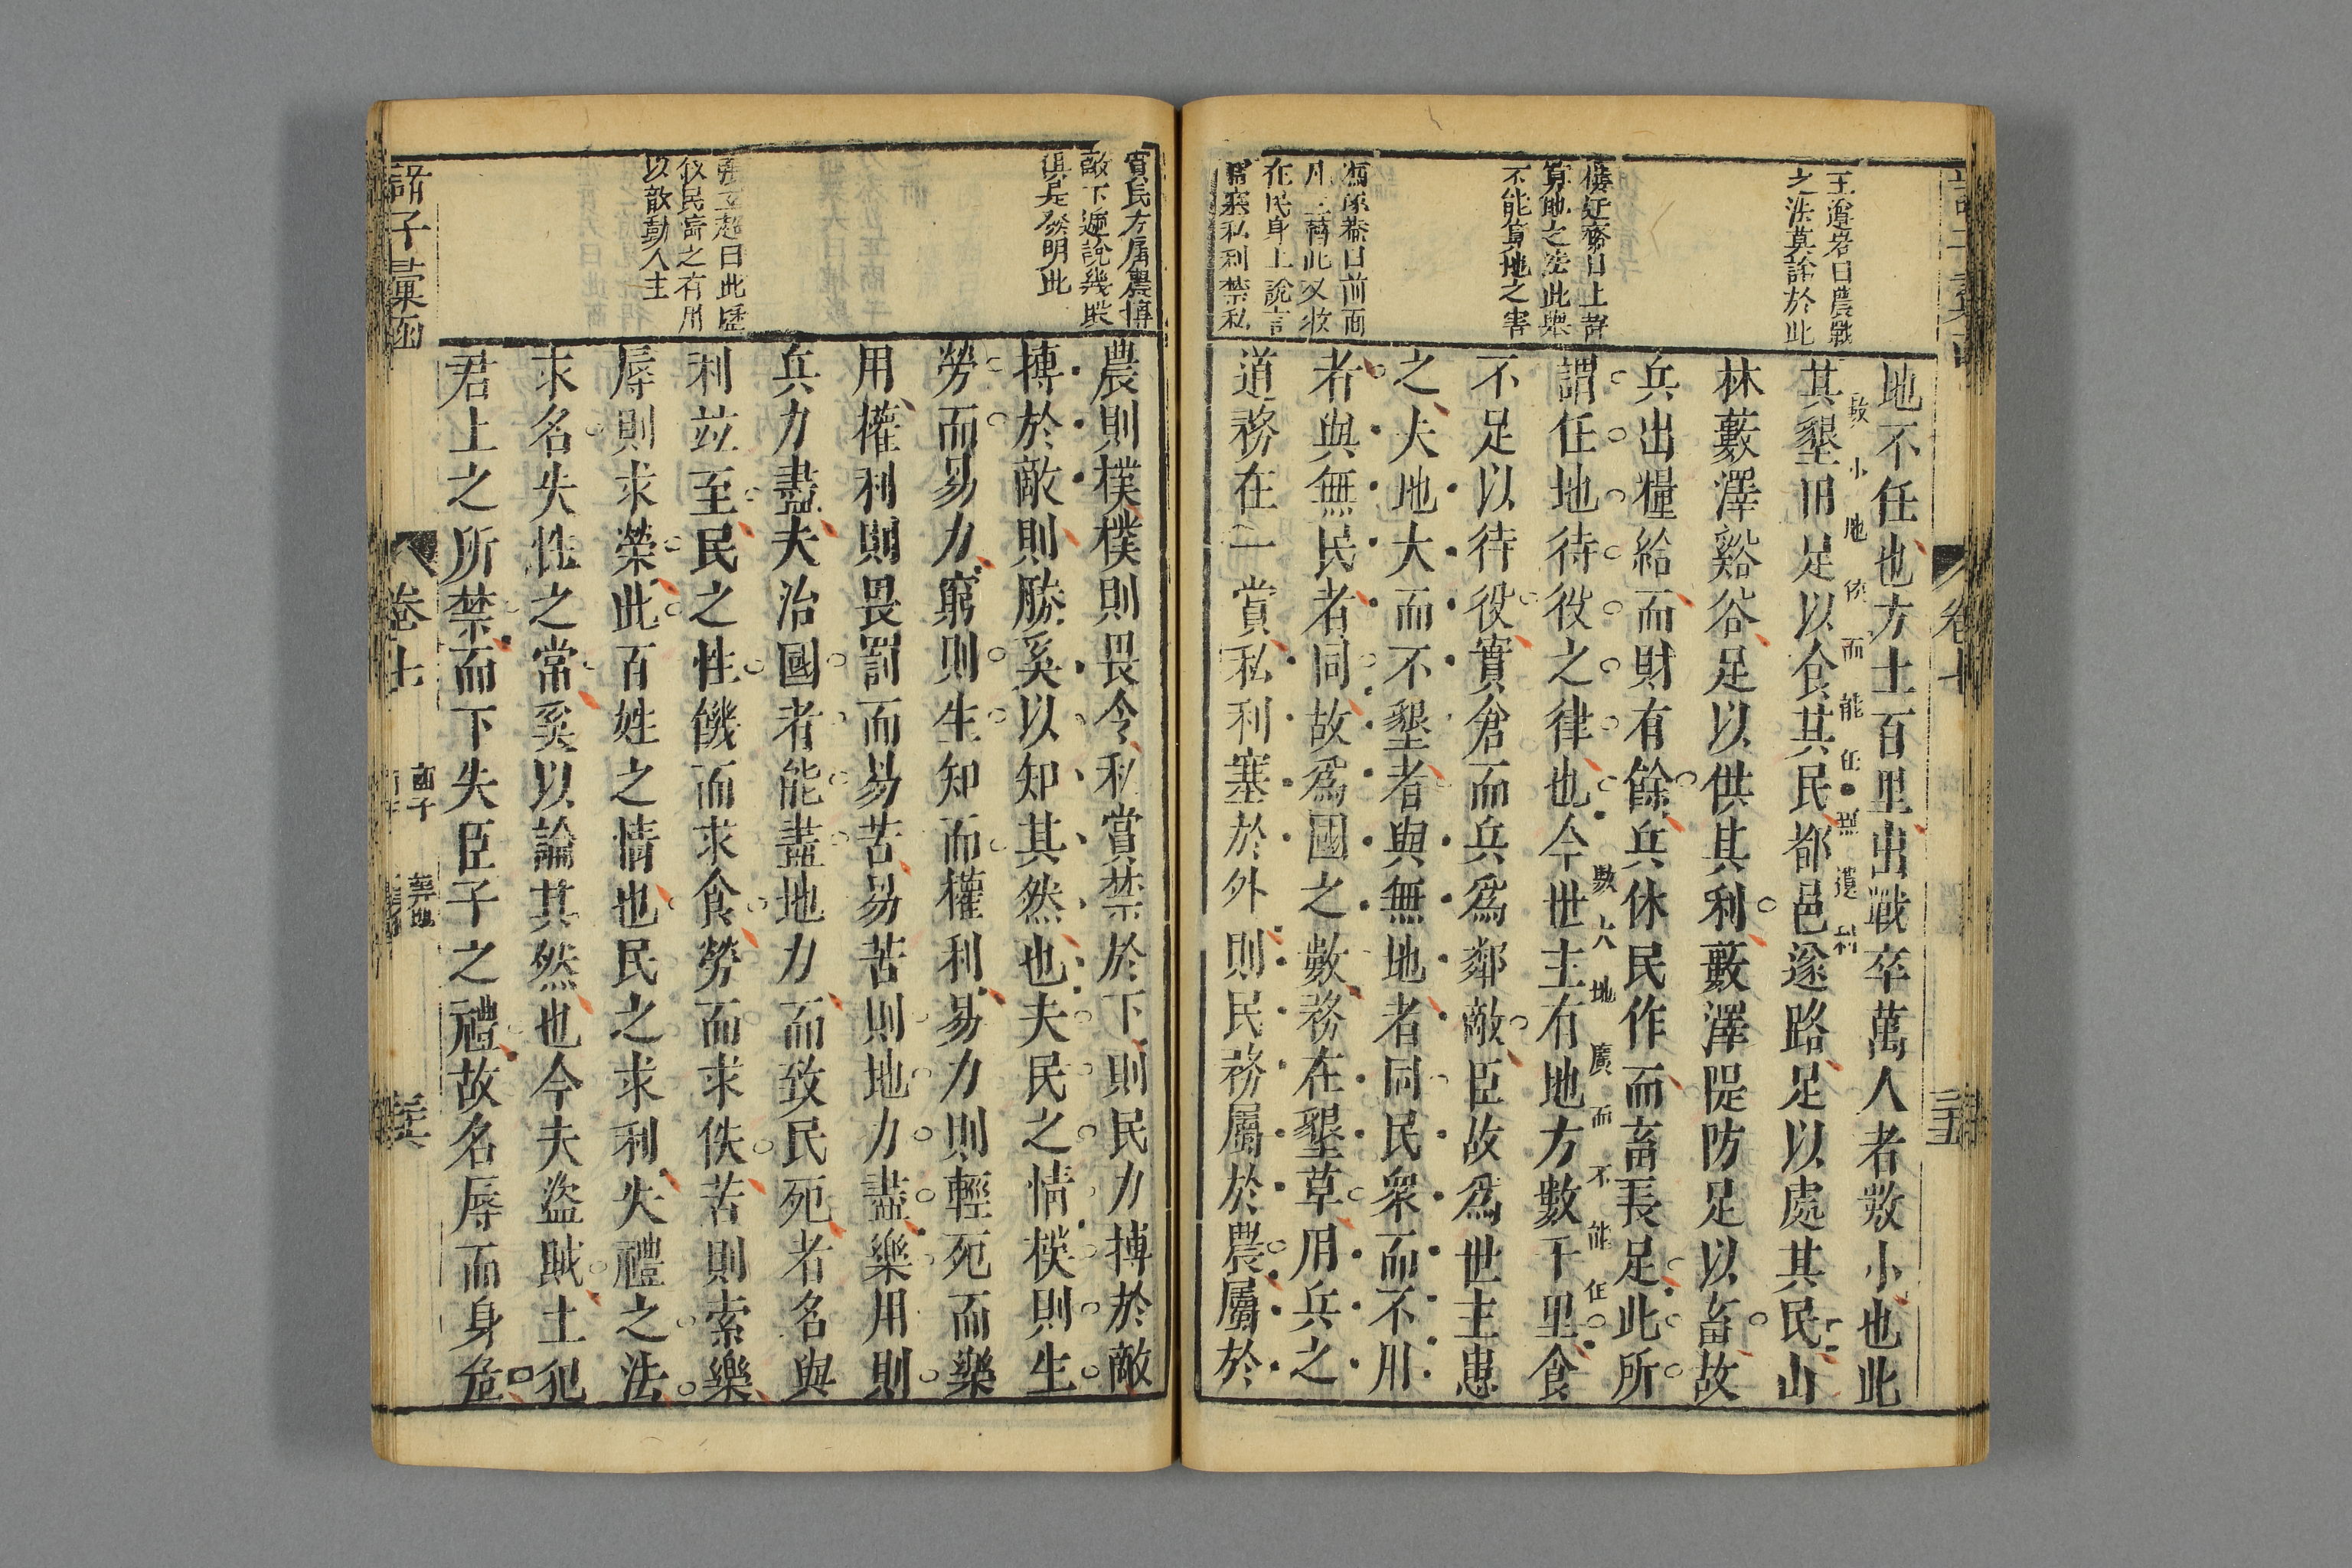 王遵岩曰農戰
之法莫詳於此
樓迂齋曰上言
算地之法此舉
不能算地之害
曰前面
凡三禱此又收
在民身上說言
賞私利禁私
地不任也方土百里出戰卒萬人者數小也此
數小地狹而能任無遺利
其墾田足以食其民都邑遂路足以處其民山
林藪澤谿谷足以供其利藪澤隄防足以畜故
兵出糧給而財有餘兵休民作而畜長足此所
謂任地待役之律也今世主有地方數千里食
數大地廣而不能任
不足以待役實倉而兵爲鄰敵臣故爲世主患
之夫地大而不墾者與無地者同民衆而不用
者與無民者同故爲國之數務在墾草用兵之
道務在一賞私利塞於外則民務屬於農屬於
卷七
賞民方屬農摶
敵下遞說幾段
俱是發明此
曰此歷
敘民富之有用
以敵動人主
農則樸樸則畏令私賞禁於下則民力摶於敵
摶於敵則勝奚以知其然也夫民之情樸則生
勞而易力窮則生知而權利易力則輕死而樂
用權利則畏罰而易苦易苦則地力盡樂用則
兵力盡夫治國者能盡地力而致民死者名與
利竝至民之性饑而求食勞而求佚苦則索樂
辱則求榮此百姓之情也民之求利失禮之法
求名失性之常奚以論其然也今夫盜賊上犯
君上之所禁而下失臣子之禮故名辱而身危
諸子彙函
卷七
商子
算地